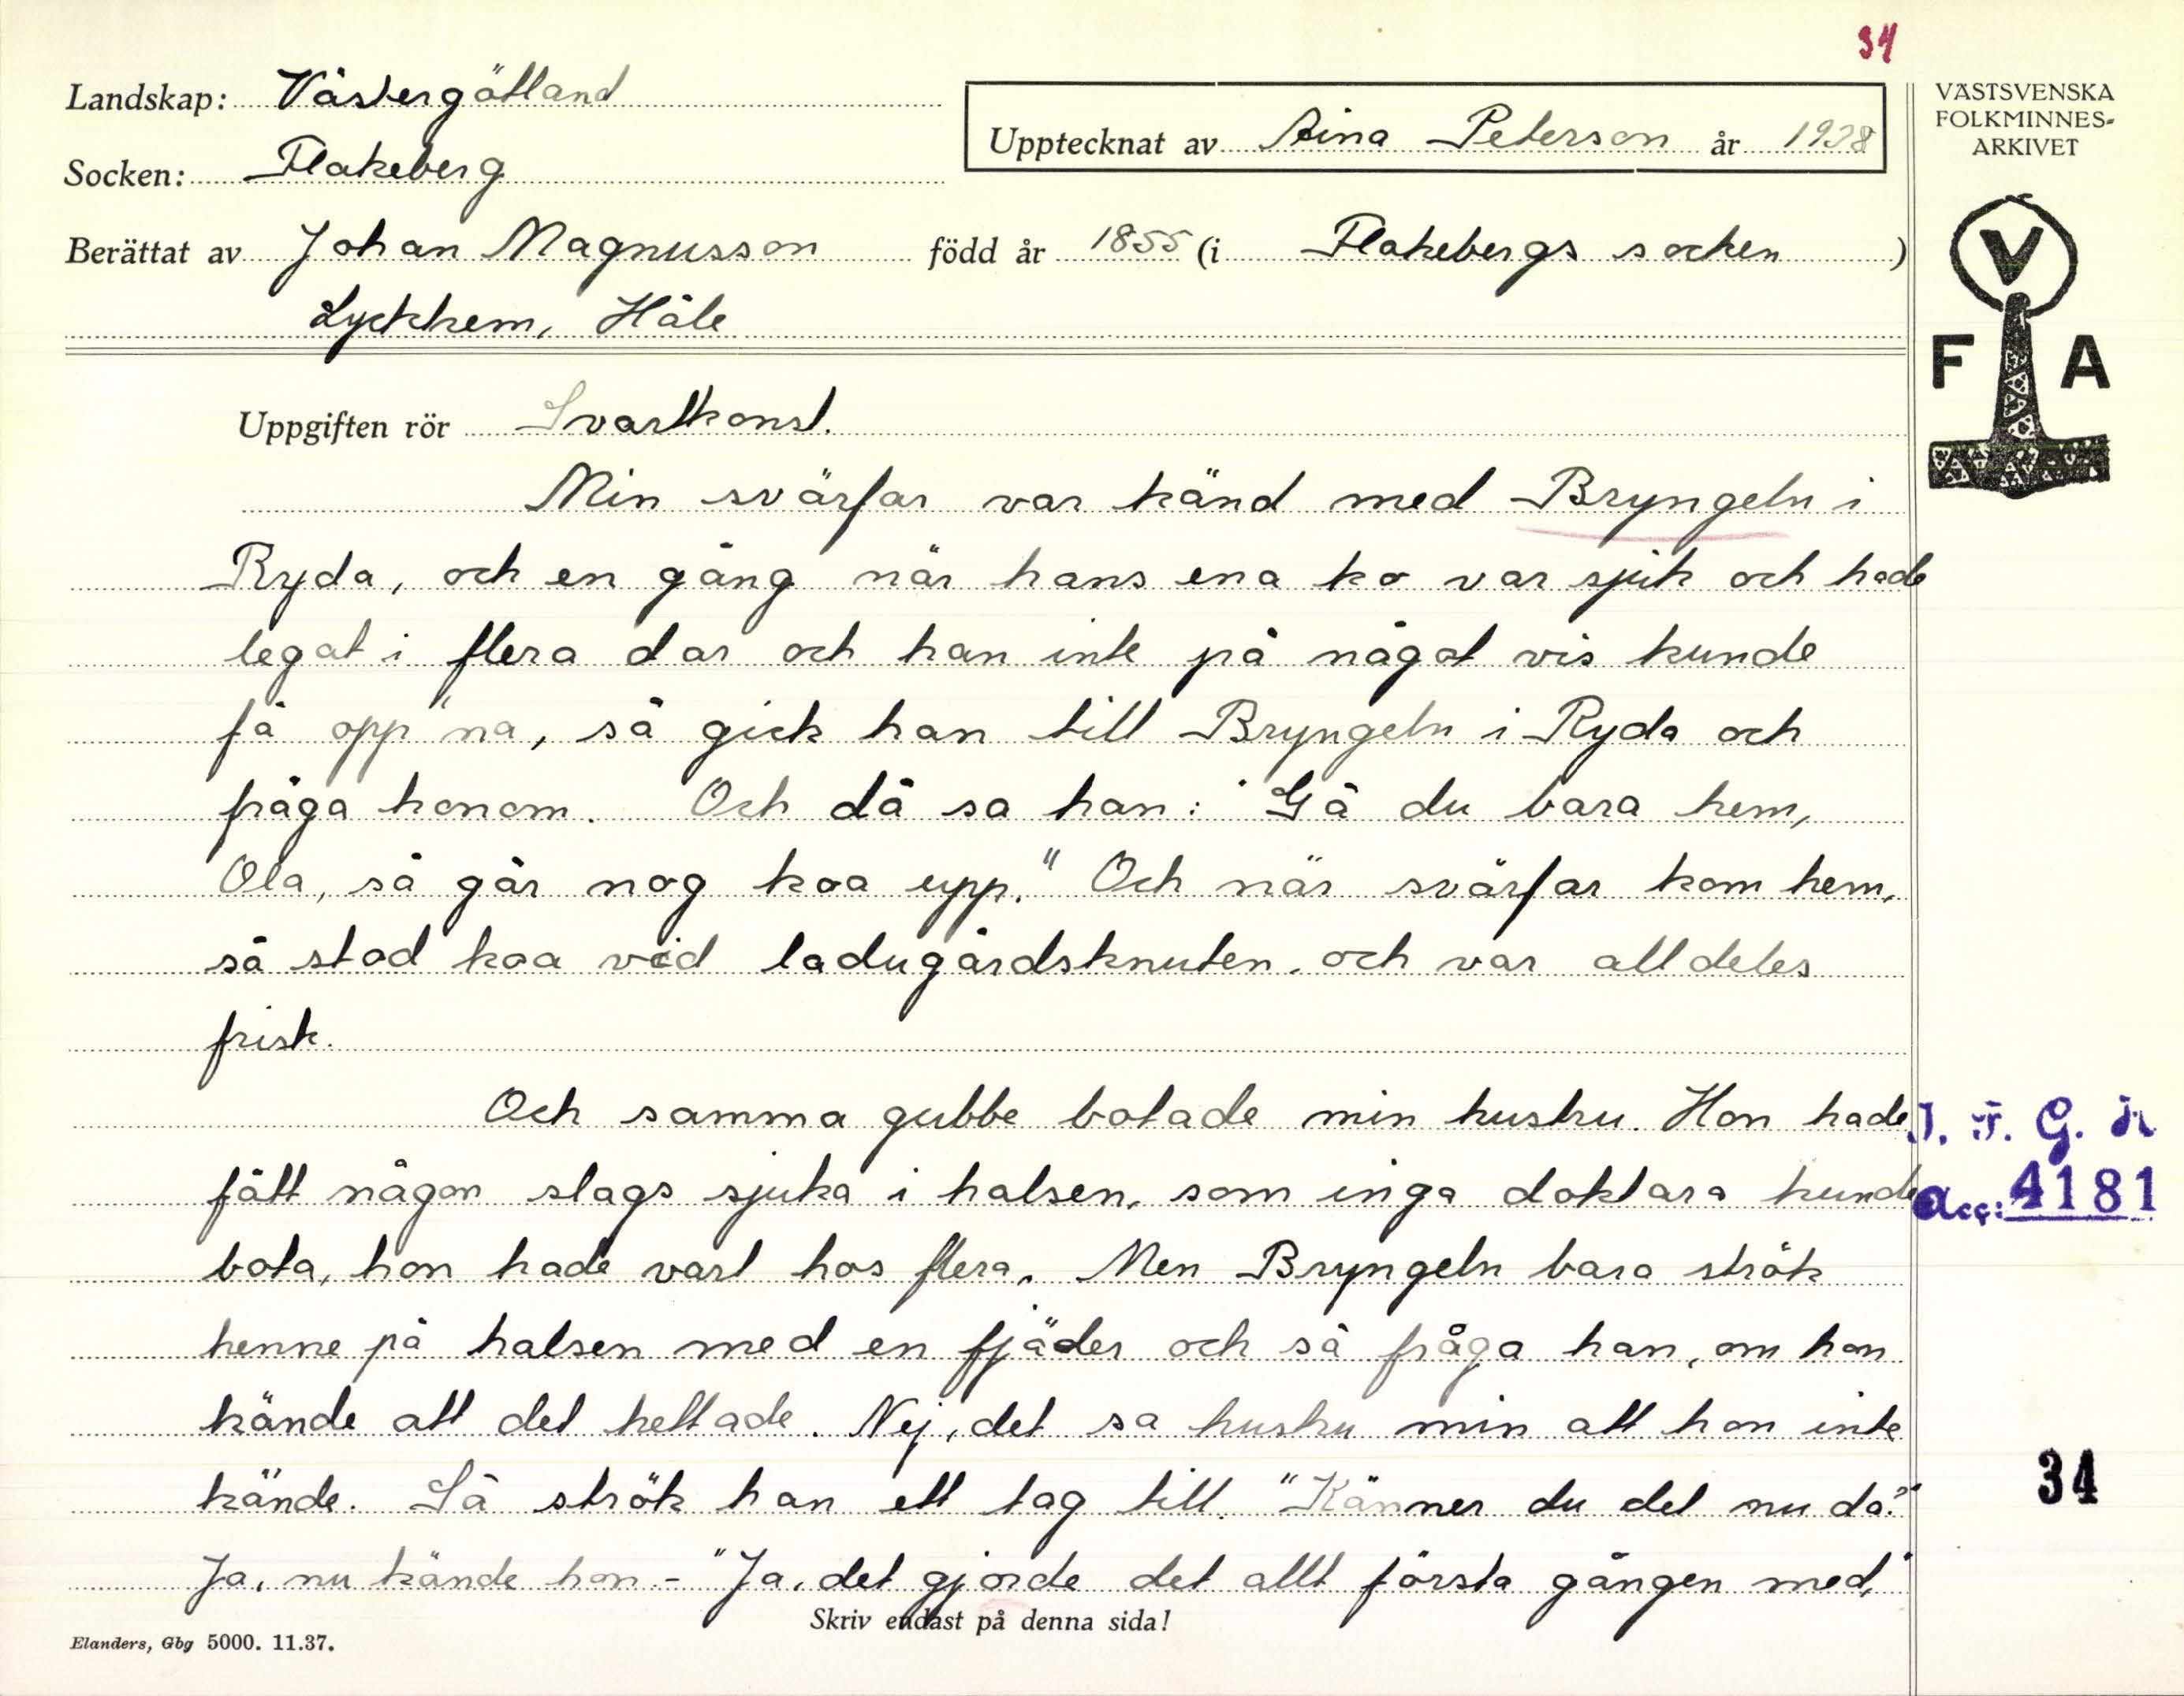 34
Landskap: Västergötland
Socken: Flakeberg
Upptecknat av Aina Peterson år 1938
VÄSTSVENSKA
FOLKMINNES-
ARKIVET
Berättat av Johan Magnusson född år 1855 (i Flakebergs socken )
Lyckhem, Häle
V
F A
Uppgiften rör Svartkonst.
Min svärfar var känd med Bryngeln i
Ryda, och en gång när hans ena ko var sjuk och hade
legat i flera dar och han inte på något vis kunde
få opp'na, så gick han till Bryngeln i Ryda och
fråga honom. Och då sa han: "Gå du bara hem,
Ola, så går nog koa upp." Och när svärfar kom hem,
så stod koa vid ladugårdsknuten, och var alldeles
frisk.
Och samma gubbe botade min hustru. Hon hade
fått någon slags sjuka i halsen, som inga doktara kunde
bota, hon hade vart hos flera. Men Bryngeln bara strök
henne på halsen med en fjäder och så fråga han, om hon
kände att det hettade. Nej, det sa hustru min att hon inte
kände. Så strök han ett tag till. "Känner du det nu då?"
Ja, nu kände hon. - "Ja, det gjorde det allt första gången med,"
Skriv endast på denna sida!
Elanders, Gbg 5000. 11.37.
I. F. G. H
Acc: 4181
34